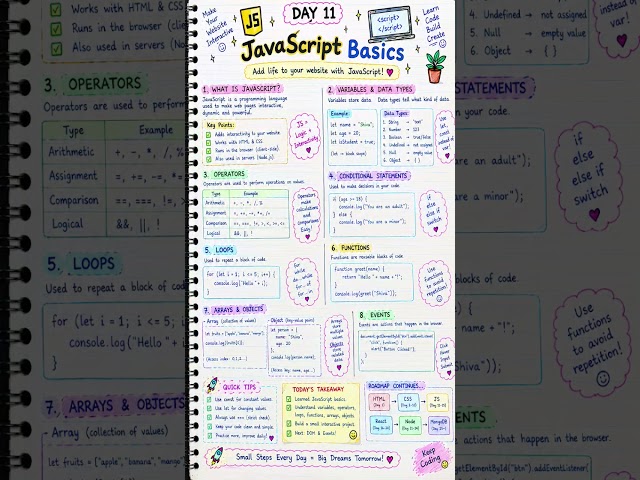 Make
Your
Website
Interactive
JS
DAY 11
<script>
</script>
Learn
Code
Build
Create
JavaScript Basics
Add life to your website with JavaScript!
1. WHAT IS JAVASCRIPT?
JavaScript is a programming language
used to make web pages interactive,
dynamic and powerful.
Key Points:
Adds interactivity to your website
Works with HTML & CSS
Runs in the browser (client-side)
Also used in servers (Node.js)
JS =
Logic +
Interactivity
2. VARIABLES & DATA TYPES
Variables store data. Data types tell what kind of data.
Example:
let name = "Shiva";
let age = 20;
let isStudent = true;
(let = block scope)
Data Types:
1. String → "text"
2. Number → 123
3. Boolean → true/false
4. Undefined → not assigned
5. Null → empty value
6. Object → { }
Use
let, const
instead of
var!
3. OPERATORS
Operators are used to perform operations on values.
Type Example
Arithmetic +, -, *, /, %
Assignment =, +=, -=, *=, /=
Comparison ==, ===, !=, >, <, >=, <=
Logical &&, ||, !
Operators
make
calculations
and
comparisons
Easy!
4. CONDITIONAL STATEMENTS
Used to make decisions in your code.
if (age >= 18) {
console.log("You are an adult");
} else {
console.log("You are a minor");
}
if
else
else if
switch
5. LOOPS
Used to repeat a block of code.
for (let i = 1; i <= 5; i++) {
console.log("Hello " + i);
}
for
while
do...while
for...of
for...in
6. FUNCTIONS
Functions are reusable blocks of code.
function greet(name) {
return "Hello " + name + "!";
}
console.log(greet("Shiva"));
Use
functions
to avoid
repetition!
7. ARRAYS & OBJECTS
- Array (collection of values)
let fruits = ["apple", "banana", "mango"];
(Access index: 0,1,2...)
- Object (key-value pair)
let person = {
name: "Shiva",
age: 20
};
console.log(person.name);
(Access key: name, age...)
Arrays
store
multiple
values
Objects
store
related
data
8. EVENTS
Events are actions that happen in the browser.
document.getElementById("btn").addEventListener(
"click", function() {
alert("Button Clicked!");
}
);
Click
Hover
Input
Submit
QUICK TIPS
Use const for constant values.
Use let for changing values.
Always use === (strict check).
Keep your code clean and simple.
Practice more, improve daily!
TODAY'S TAKEAWAY
Learned JavaScript basics
Understand variables, operators,
loops, functions, arrays, objects
Build a small interactive project
Next: DOM & Events!
ROADMAP CONTINUES...
HTML → CSS → JS
React → Node → MongoDB
Small Steps Every Day = Big Dreams Tomorrow!
Keep
Coding